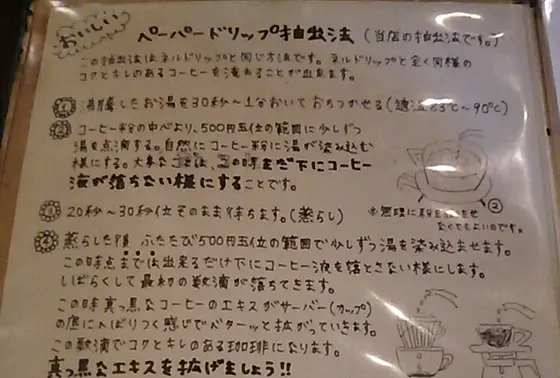 おいしい
ペーパードリップ抽出法 (当店の抽出法です。)
この抽出法はネルドリップと同じ方法です。ネルドリップと全く同様の
コクとキレのあるコーヒーを淹れることが出来ます。
① 沸騰したお湯を30秒〜1分おいておちつかせる(適温83℃〜90℃)
② コーヒー粉の中心より、500円玉位の範囲に少しずつ
湯を点滴する。自然にコーヒー粉に湯が染み込む
様にする。大事なことは、この時まだ下にコーヒー
液が落ちない様にすることです。
③ 20秒〜30秒位そのまま待ちます。(蒸らし)
※無理に粉を
なくてもよいのです。
②
④ 蒸らした後 ふたたび500円玉位の範囲で少しずつ湯を染み込ませます。
この時点までは出来るだけ下にコーヒー液を落とさない様にします。
しばらくして最初の数滴が落ちてきます。
この時真っ黒なコーヒーのエキスがサーバー(カップ)
の底にへばりつく感じでベターッと拡がっていきます。
この数滴でコクとキレのある珈琲になります。
真っ黒なエキスを拡げましょう!!